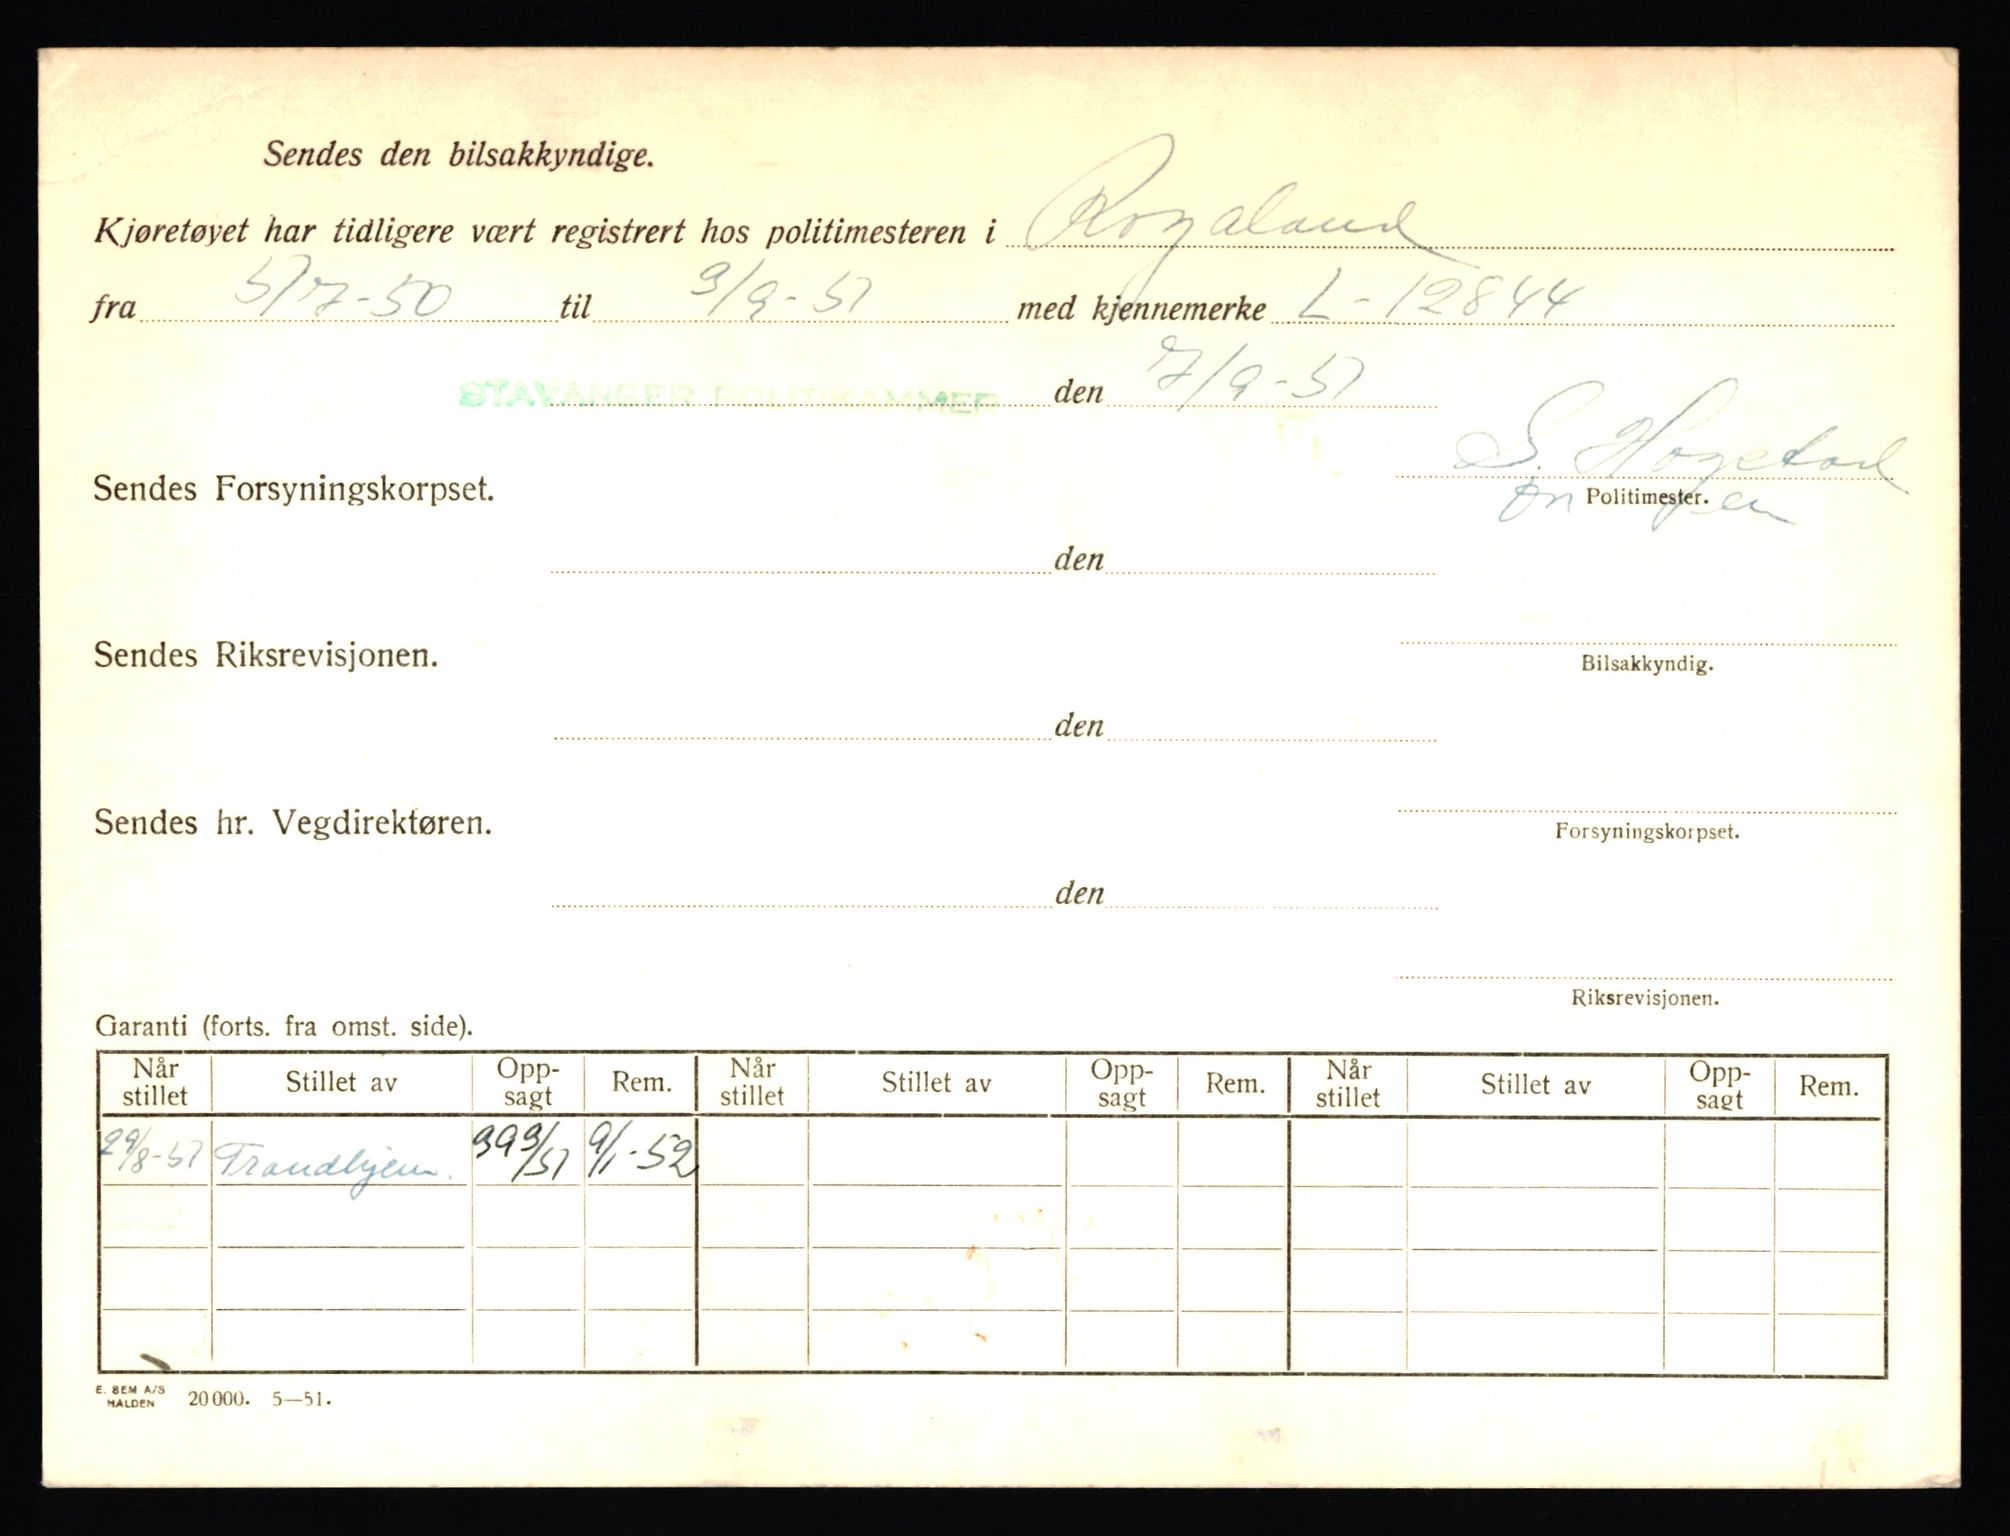 Sendes den bilsakkyndige.
Kjøretøyet har tidligere vært registrert hos politimesteren i Rogaland
fra 5/7-50 til 3/9-51 med kjennemerke L-12844
STAVANGER POLITIKAMMER den 7/9-51
S. Hogstad
Sendes Forsyningskorpset.
Politimester.
den
Sendes Riksrevisjonen.
Bilsakkyndig.
den
Sendes hr. Vegdirektøren.
Forsyningskorpset.
den
Riksrevisjonen.
Garanti (forts. fra omst. side).
Når stillet Stillet av Opp-sagt Rem. Når stillet Stillet av Opp-sagt Rem. Når stillet Stillet av Opp-sagt Rem.
29/8-51 Trondhjem. 9/1-52
E. SEM A/S
HALDEN 20000. 5—51.